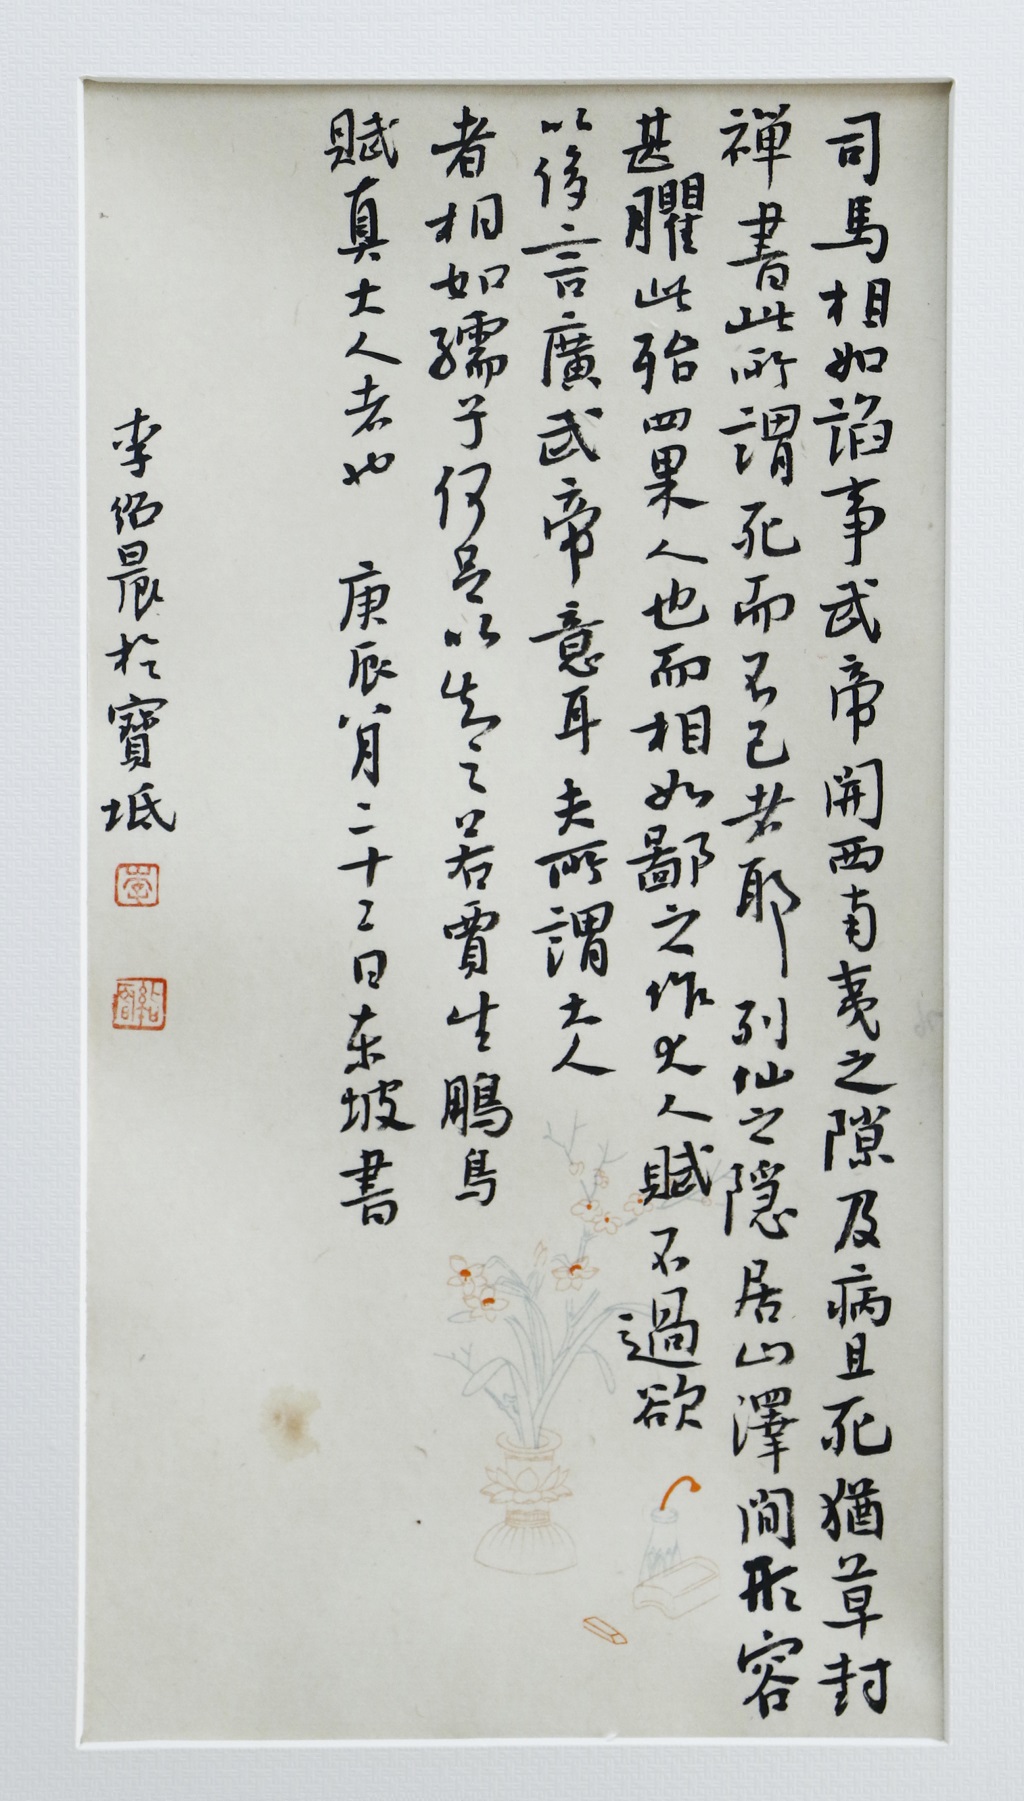 司馬相如諂事武帝開西南夷之隙及病且死猶草封
禪書此所謂死而不已者耶列仙之隱居山澤間形容
甚臞此殆四果人也而相如鄙之作大人賦不過欲
以侈言廣武帝意耳夫所謂大人
者相如孺子何足以知之若賈生鵩鳥
賦真大人者也 庚辰八月二十二日東坡書
李紹晨於寶坻